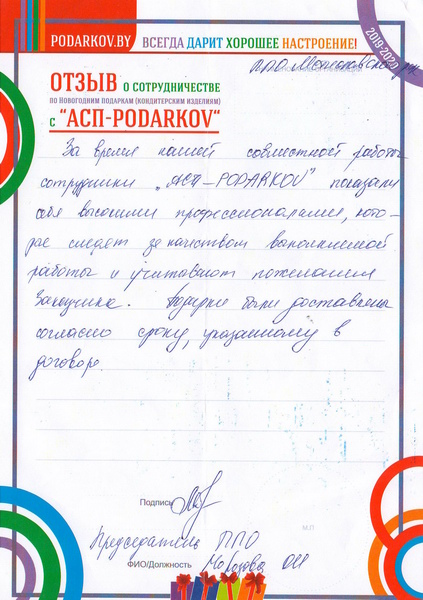 PODARKOV.BY ВСЕГДА ДАРИТ ХОРОШЕЕ НАСТРОЕНИЕ!
2019-2020
ППО
ОТЗЫВ О СОТРУДНИЧЕСТВЕ
ПО НОВОГОДНИМ ПОДАРКАМ (КОНДИТЕРСКИМ ИЗДЕЛИЯМ)
С "АСП-PODARKOV"
За время нашей совместной работы
сотрудники „АСП-PODARKOV" показали
себя высокими профессионалами, кото-
рые следят за качеством выполняемой
работы и учитывают пожелания
Заказчика. Подарки были доставлены
согласно сроку, указанному в
договоре.
Подпись
М.П.
Председатель ППО
ФИО/Должность Морозова